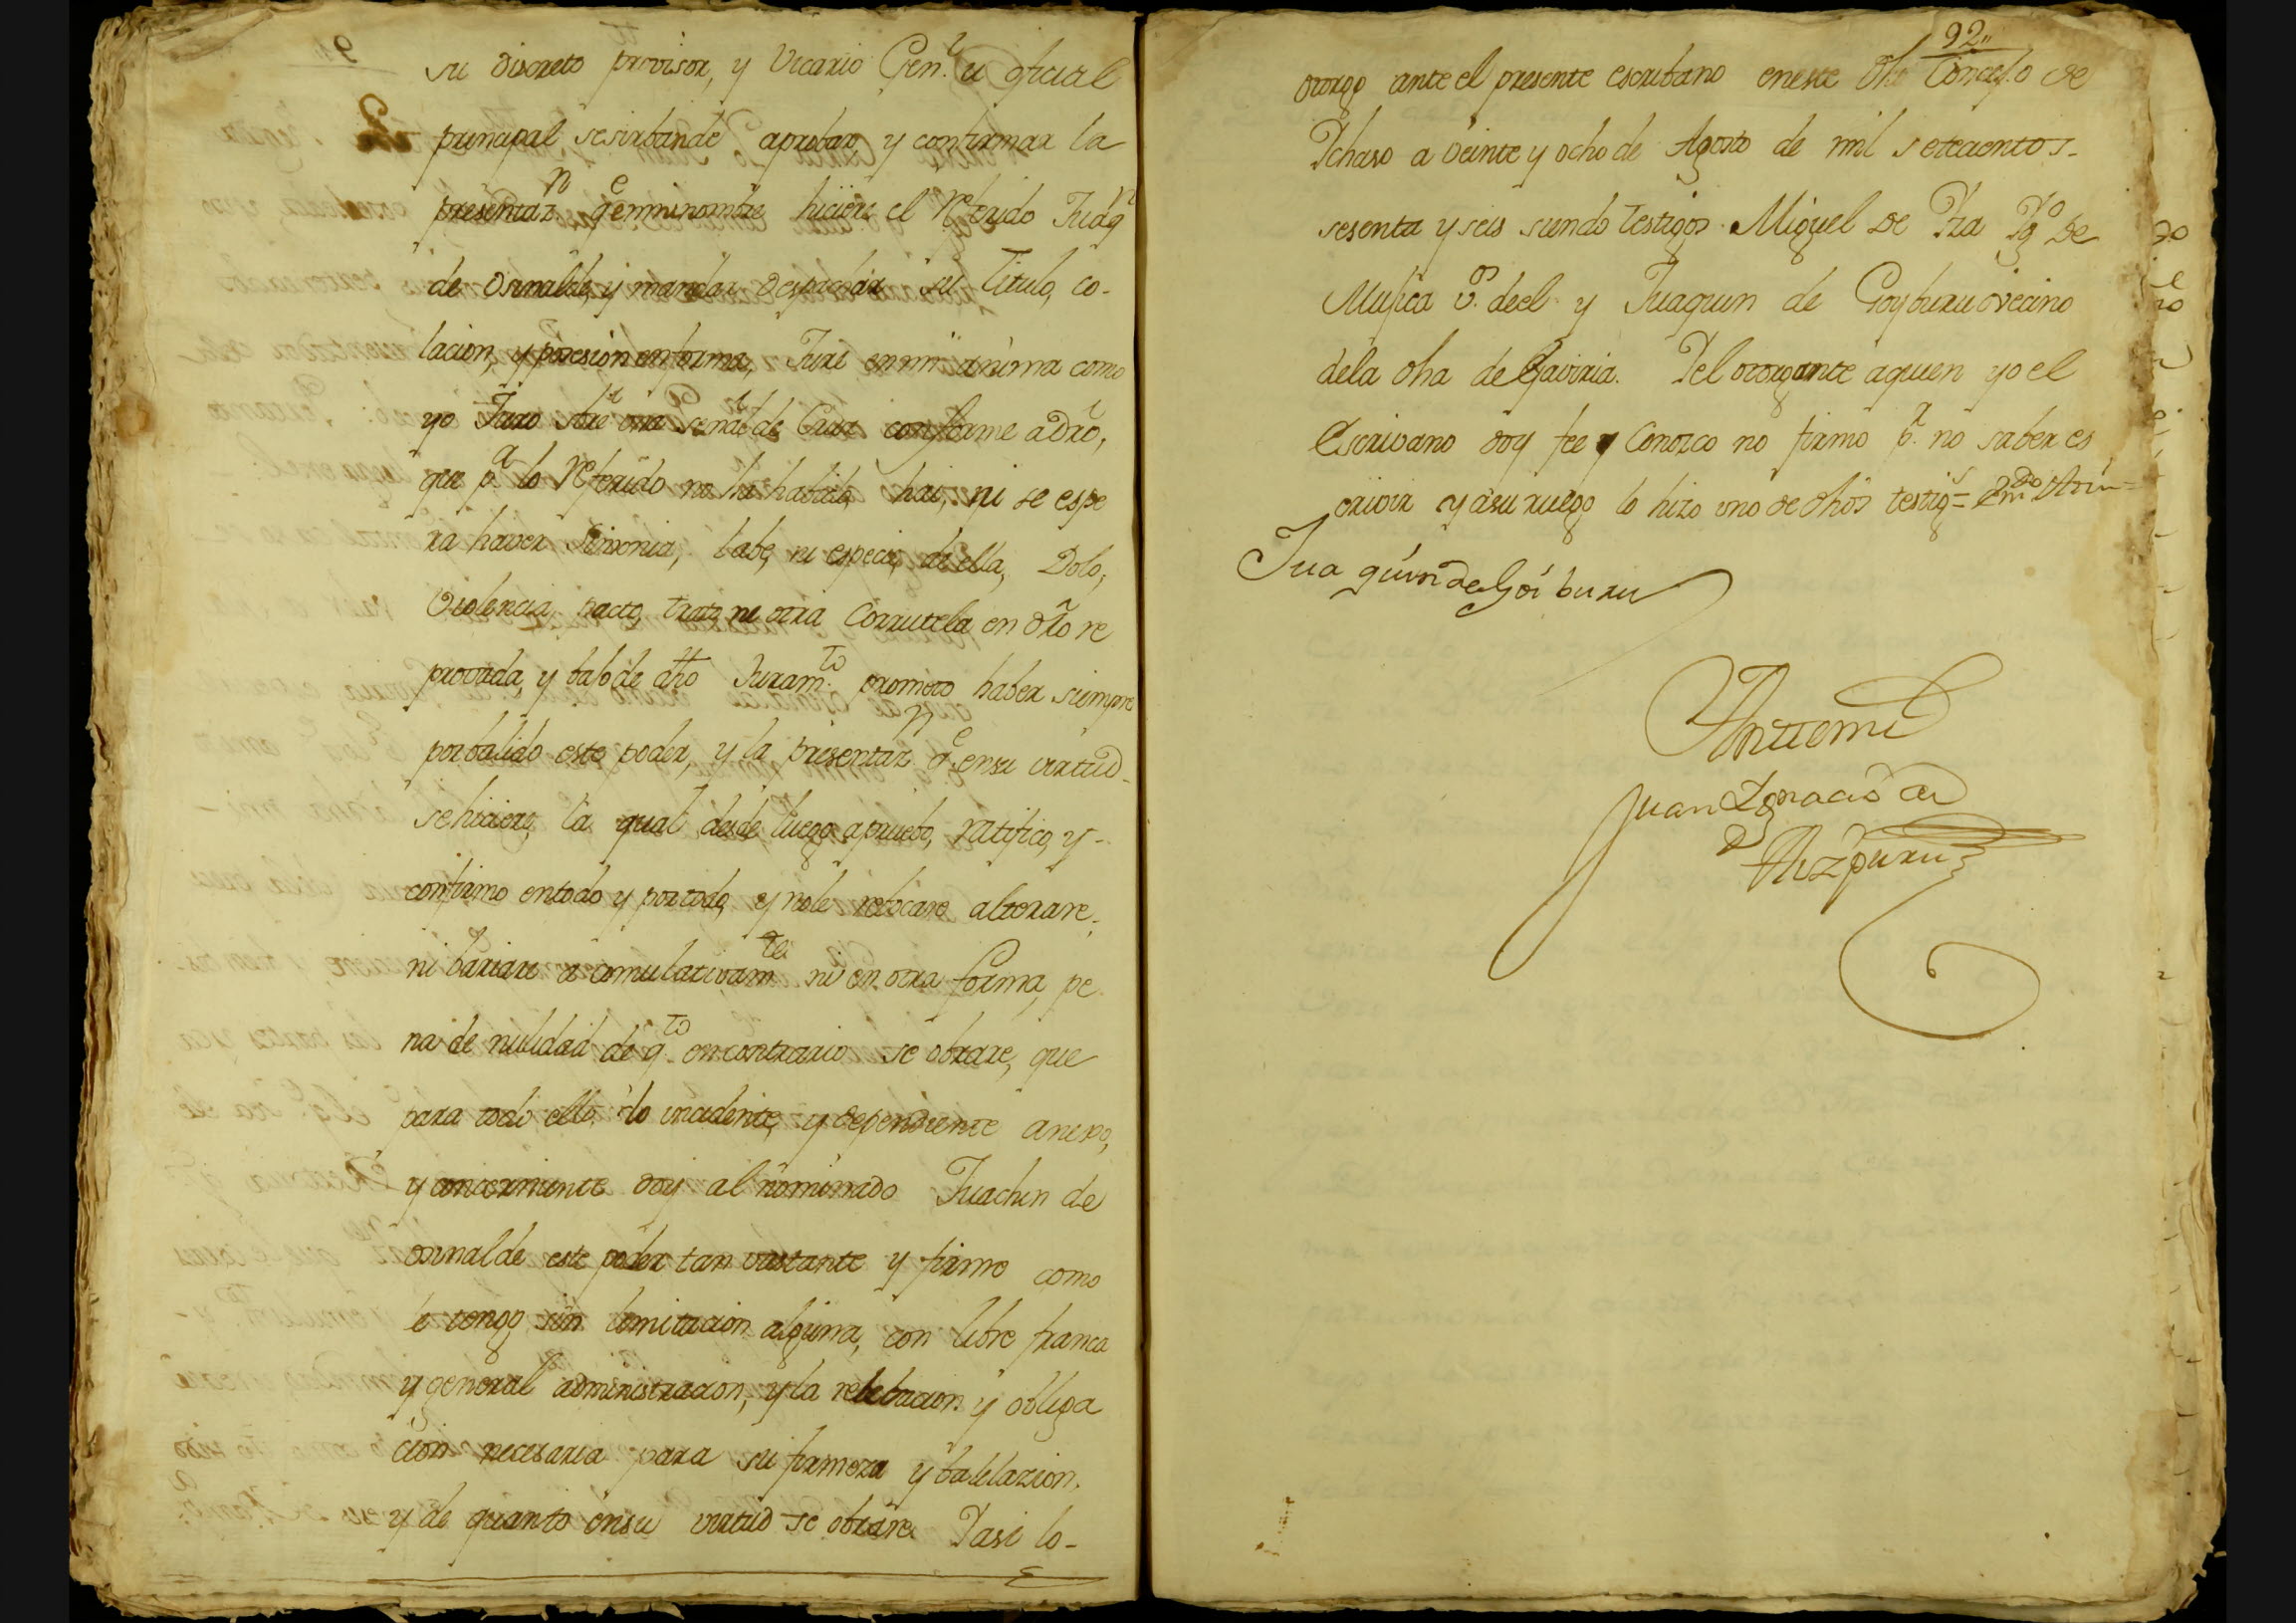 su discreto provisor, y Vicario Gen.l u oficial
principal sesirbande aprobar, y confirmar la
presentaz.n q.e enminombre hiciere el referido Juaq.n
de Osinalde, y mandar despachar su titulo, co-
lacion, y posesion enforma, Juré enmi anima como
yo Juro sbre una señal de Cruz conforme adro,
que p.a lo referido no ha habido, hai, ni se espe
ra haver Simonia, labe, ni especie de ella, Dolo,
violencia, pacto, trato, ni otra Corrutela en dro re
provada, y bajo de dho Juram.to prometo haber siempre
porbalido este poder, y la presentaz.n q.e ensu virtud-
sehiciere, la qual desde luego apruebo, ratifico, y-
confirmo entodo y portodo, y nole rebocare alterare,
ni bariare acomulativam.te ni en otra forma, pe
na de nulidad de q.to encontrario se obrare, que
para todo ello, lo incidente, y dependiente anexo,
y concerniente doy al nominado Juachin de
osinalde este poder tan vastante y firme como
le tengo sin limitacion alguna, con libre franca
y general administracion, y la relebacion y obliga
cion necesaria para su firmeza y balidazion.
y de quanto ensu virtud se obrare. Yasi lo-
92,,
otorgo ante el presente escribano eneste dho Concejo de
Ychaso a veinte y ocho de Agosto de mil setecientos-
sesenta y seis siendo testigos Miguel de Yza Mro de
Musica v.o deel y Juaquin de Goyburu vecino
dela dha de Gaviria. Yel otorgante aquien yo el
Escrivano doy fee Conozco no firmo p.r no saber es
crivir y asu ruego lo hizo uno de dhos testig.s =
Juaquin de Goi buru
Antemi
Juan Ygnacio de
Aizpuru